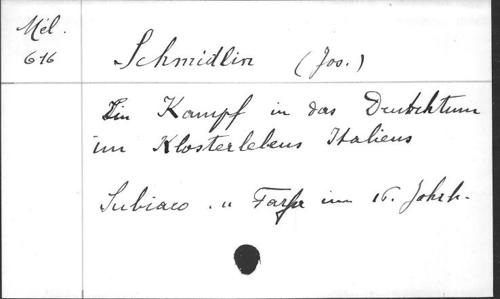 Mél.
616
Schmidlin (Jos.)
Ein Kampf in das Deutschtum
im Klosterlebens Italiens
Subiaco . u Farfa im 16. Jahrh.